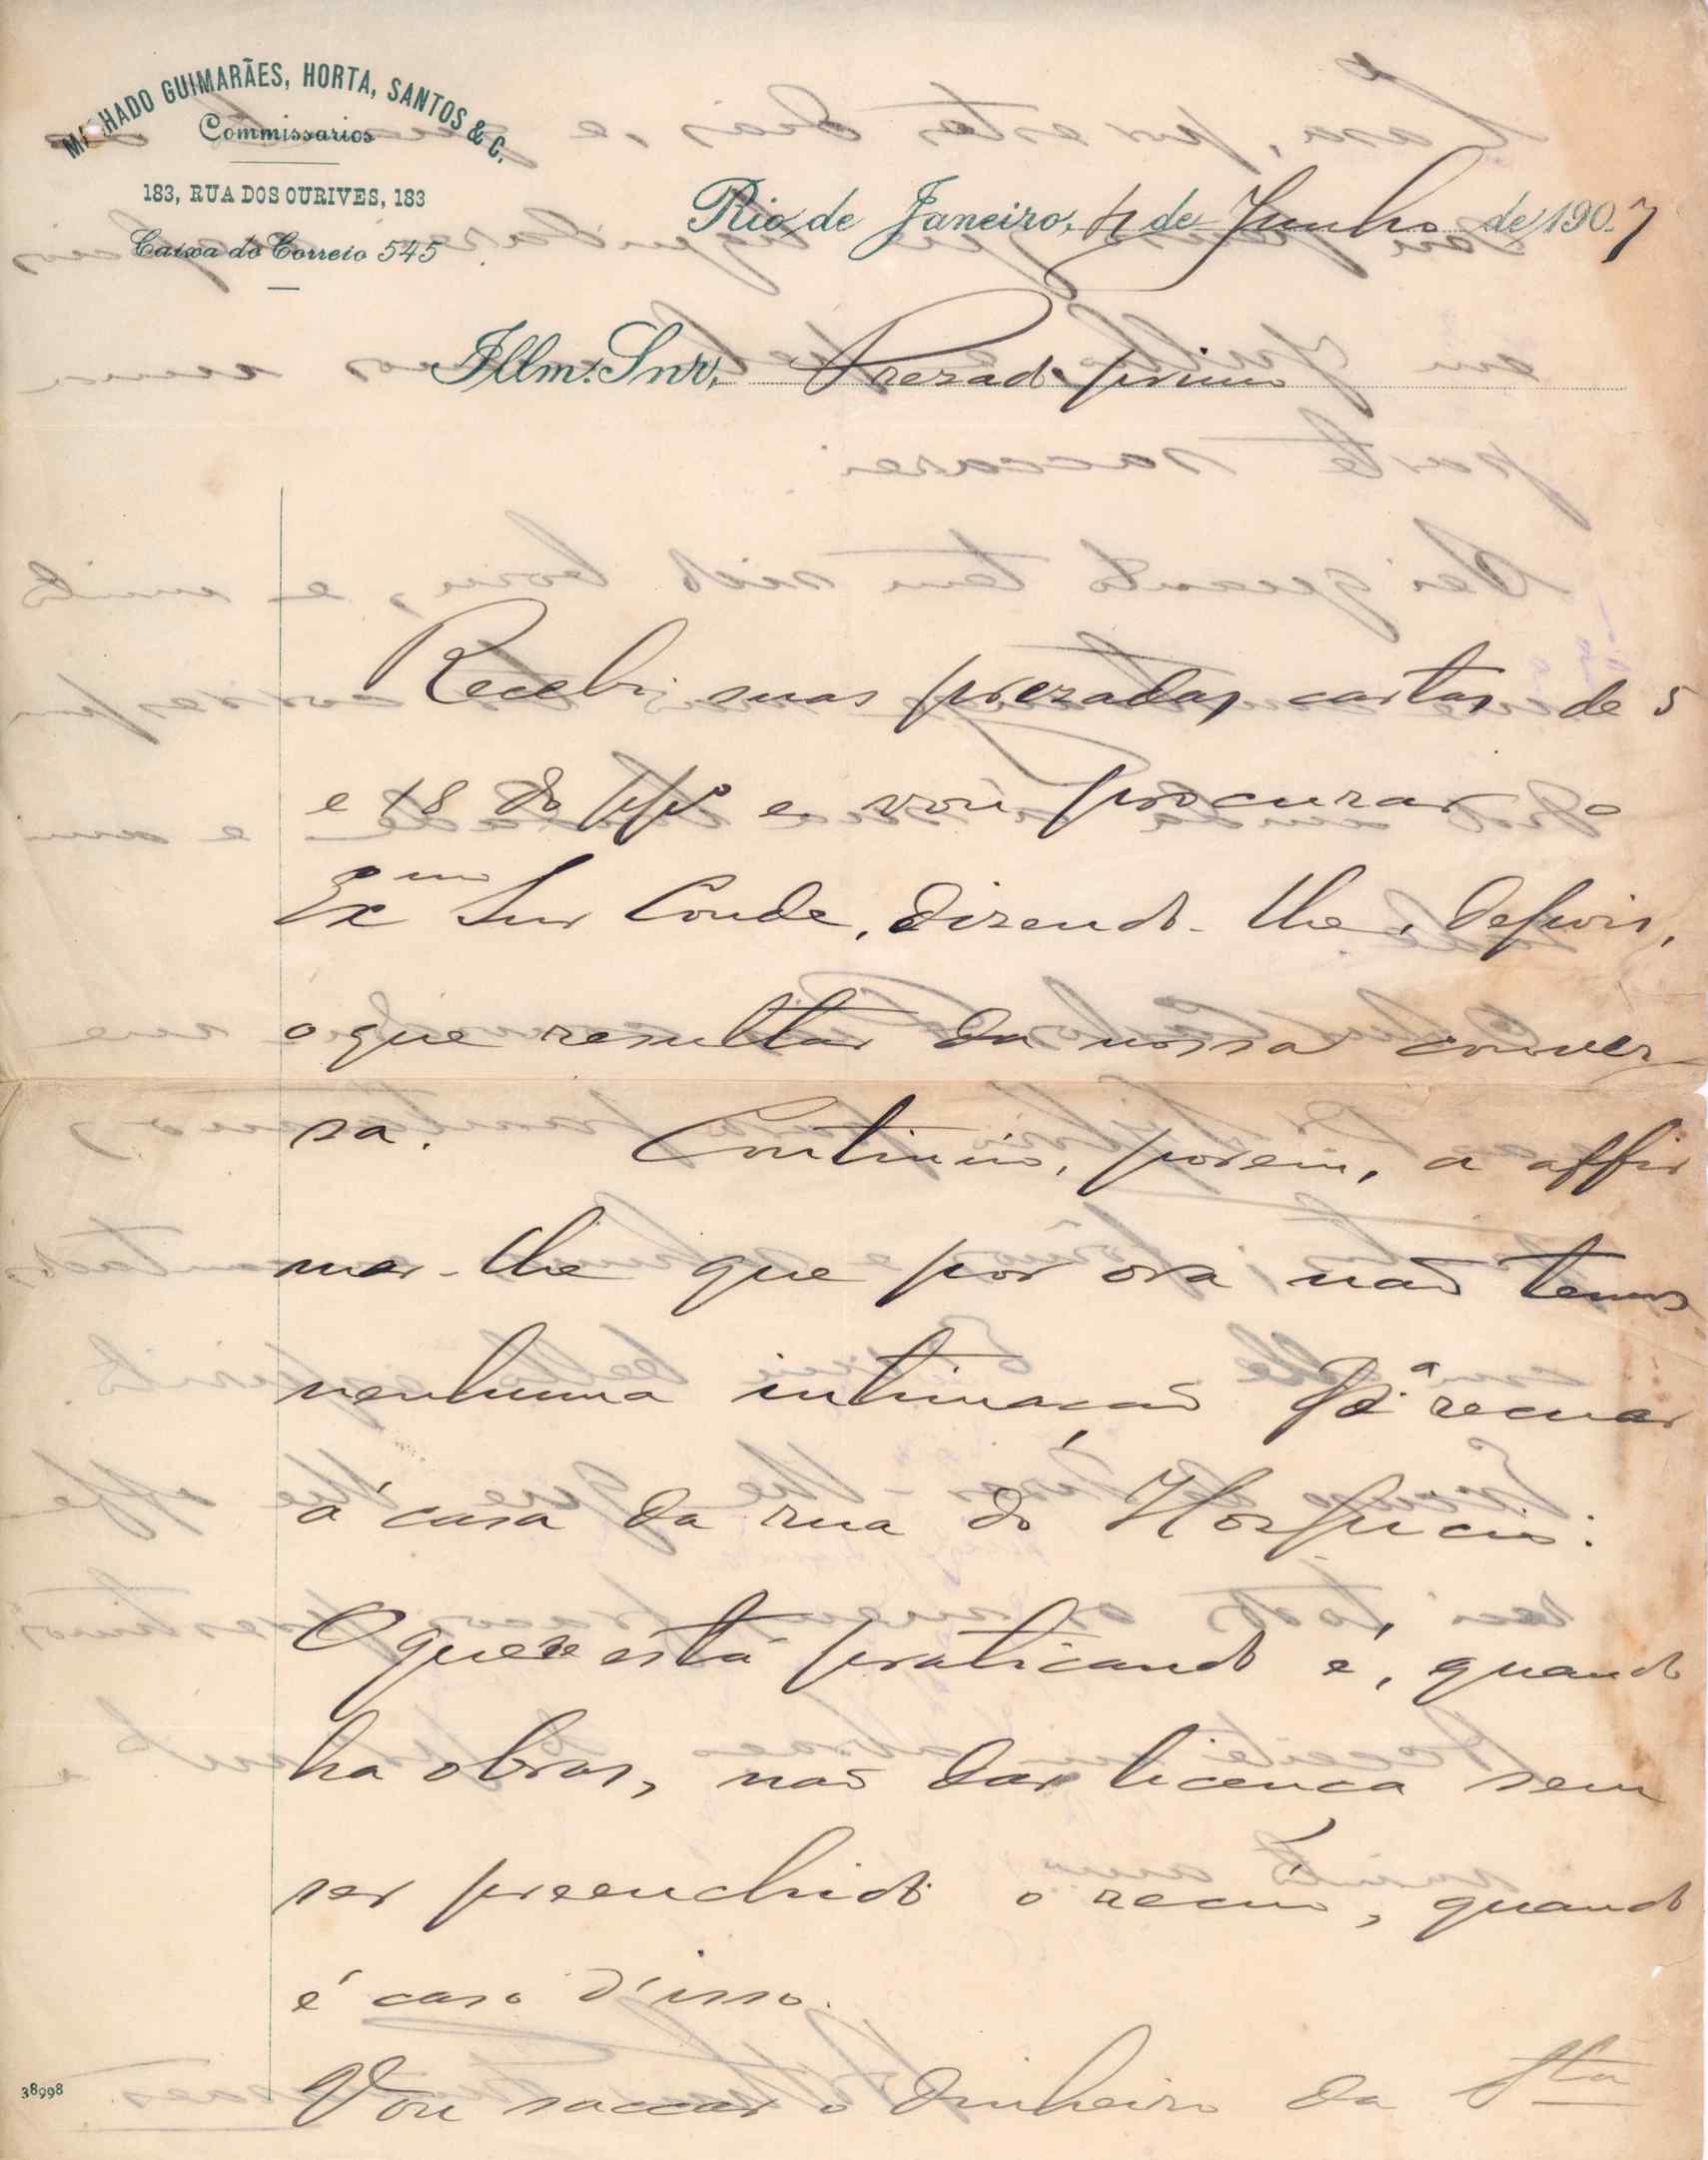 MACHADO GUIMARÃES, HORTA, SANTOS & C.
Commissarios
183, RUA DOS OURIVES, 183
Caixa do Correio 545
Rio de Janeiro, 4 de Junho de 1907
Illm. Snr. Prezado primo
Recebi suas prezadas cartas de 5
e 18 do pp° e vou procurar o
Exmo Snr Conde, dizendo-lhe, depois,
o que resultar da nossa conver
sa. Continúo, porém, a affir
mar-lhe que por ora não temos
nenhuma intimação pª recuar
a casa da rua do Hospicio:
O que se está praticando é, quando
ha obras, não dar licença sem
ser preenchido o recúo, quando
é caso d'isso.
Vou saccar o dinheiro da Sta
38998